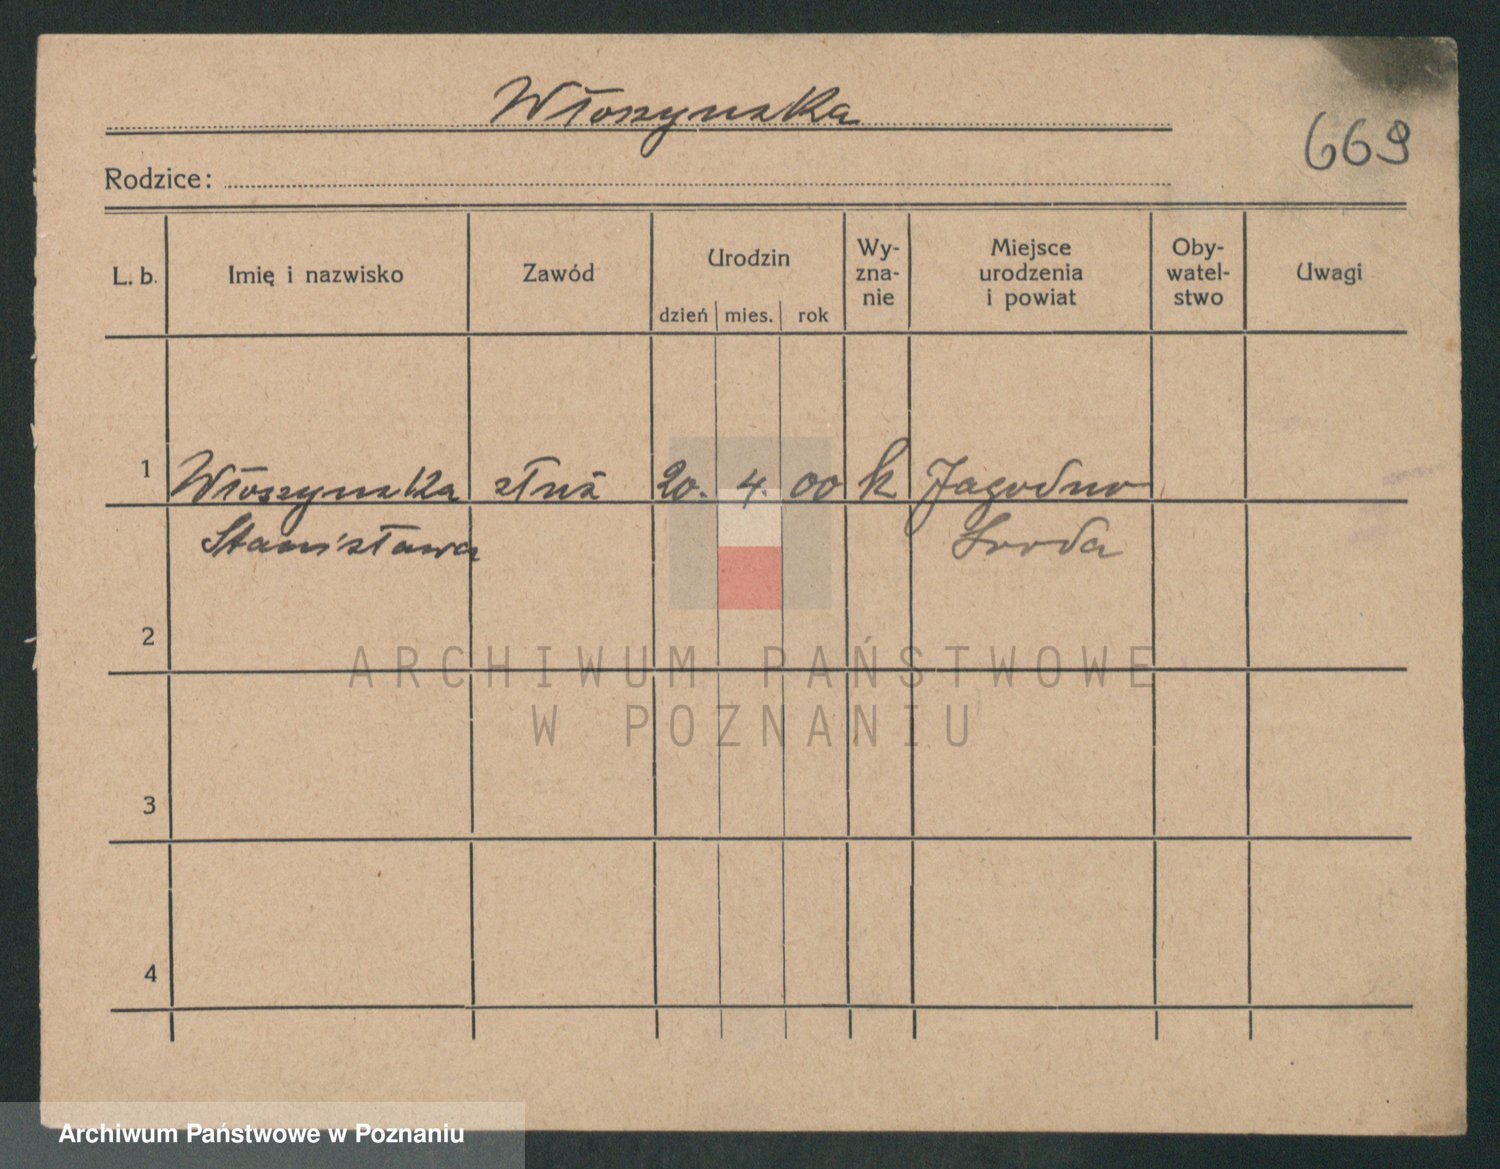 Włoszynska
669
Rodzice:
L. b. Imię i nazwisko Zawód Urodzin dzień mies. rok Wy-zna-nie Miejsce urodzenia i powiat Oby-watel-stwo Uwagi
1 Włoszynska 20. 4. 00 k Jagodno
Stanisława Sroda
2
3
4
ARCHIWUM PAŃSTWOWE
W POZNANIU
Archiwum Państwowe w Poznaniu